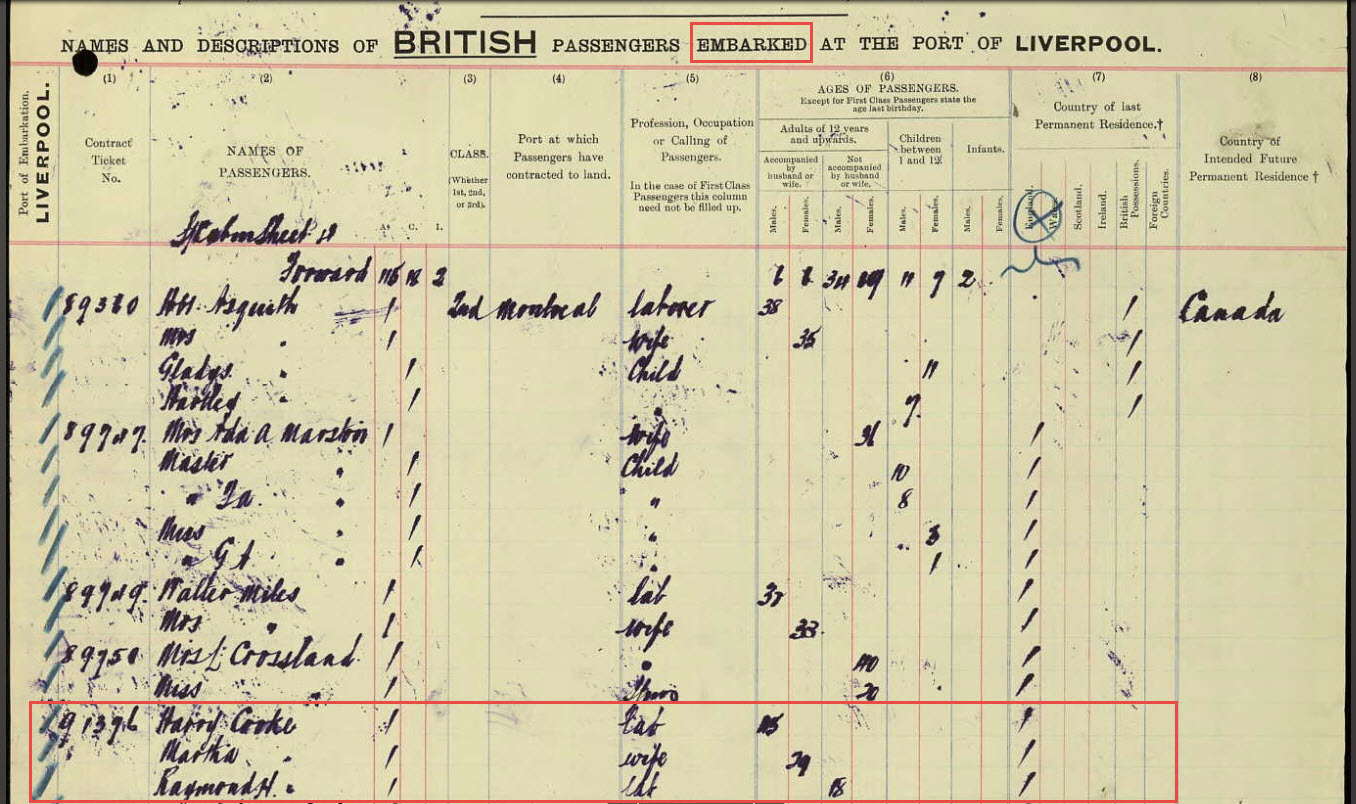 NAMES AND DESCRIPTIONS OF BRITISH PASSENGERS EMBARKED AT THE PORT OF LIVERPOOL.
Port of Embarkation.
LIVERPOOL.
(1)
Contract
Ticket
No.
(2)
NAMES OF
PASSENGERS.
(3)
CLASS.
(Whether
1st, 2nd,
or 3rd).
(4)
Port at which
Passengers have
contracted to land.
(5)
Profession, Occupation
or Calling of
Passengers.
In the case of First Class
Passengers this column
need not be filled up.
(6)
AGES OF PASSENGERS.
Except for First Class Passengers state the
age last birthday.
Adults of 12 years
and upwards.
Accompanied
by
husband or
wife.
Not
accompanied
by husband
or wife.
Children
between
1 and 12.
Infants.
Males.
Females.
Males.
Females.
Males.
Females.
Males.
Females.
(7)
Country of last
Permanent Residence.†
Scotland.
Ireland.
British
Possessions.
Foreign
Countries.
(8)
Country of
Intended Future
Permanent Residence †
A. C. I.
Forward 2 6 34 11 9 2
89380 Asquith 1 2nd Montreal laborer 38 1 Canada
Mrs " 1 wife 35 1
Gladys " 1 Child 11 1
Hartley " 1 " 7 1
Mrs Ada A Marston 1 wife 36 1
Master " 1 Child 10 1
" " 1 " 8 1
Miss 1 " 3 1
" G A " 1 " 1 1
Walter Miles 1 lab 1
Mrs " 1 wife 33 1
89750 Mrs L Crossland 1 " 40 1
Miss " 1 20 1
91396 Harry Cooke 1 lab 45 1
" Martha " 1 wife 1
Raymond H. " 1 lab 18 1